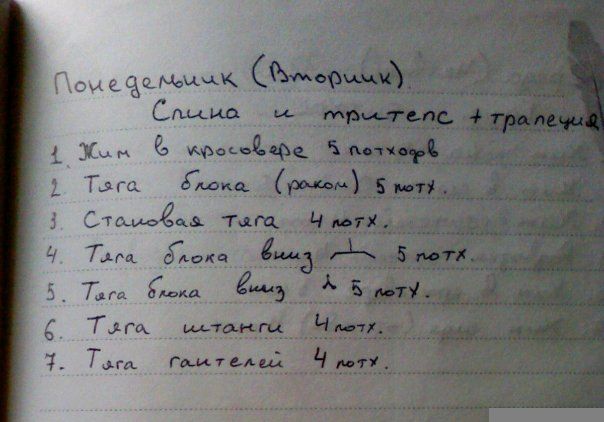 Понедельник (Вторник).
Спина и тритепс + трапеция
1. Жим в кросовере 5 потходов
2 Тяга блока (раком) 5 потх.
3. Становая тяга 4 потх.
4. Тяга блока вниз 5 потх.
5. Тяга блока вниз 5 потх.
6. Тяга штанги 4 потх.
7. Тяга гантелей 4 потх.